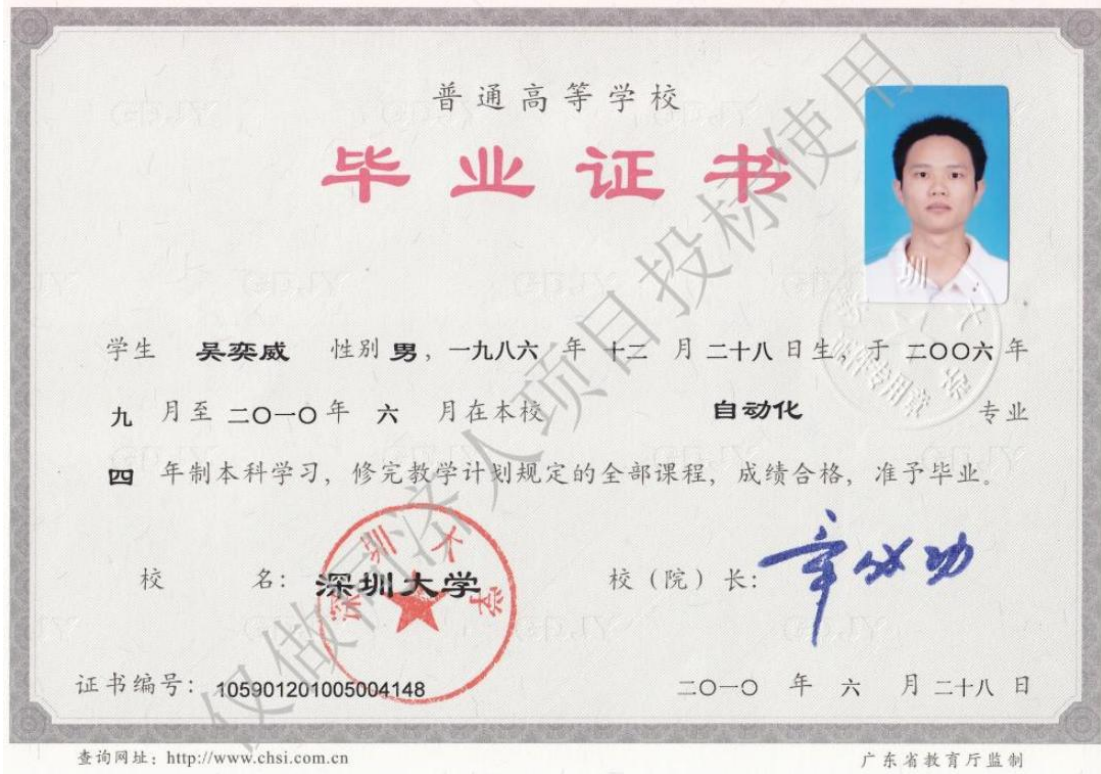 普通高等学校
毕业证书
学生 吴奕威 性别 男，一九八六 年 十二 月 二十八 日生，于 二〇〇六 年
九 月至 二〇一〇 年 六 月在本校 自动化 专业
四 年制本科学习，修完教学计划规定的全部课程，成绩合格，准予毕业。
校 名：深圳大学 校（院）长：章必功
深圳大学
证书编号：105901201005004148 二〇一〇 年 六 月 二十八 日
查询网址：http://www.chsi.com.cn 广东省教育厅监制